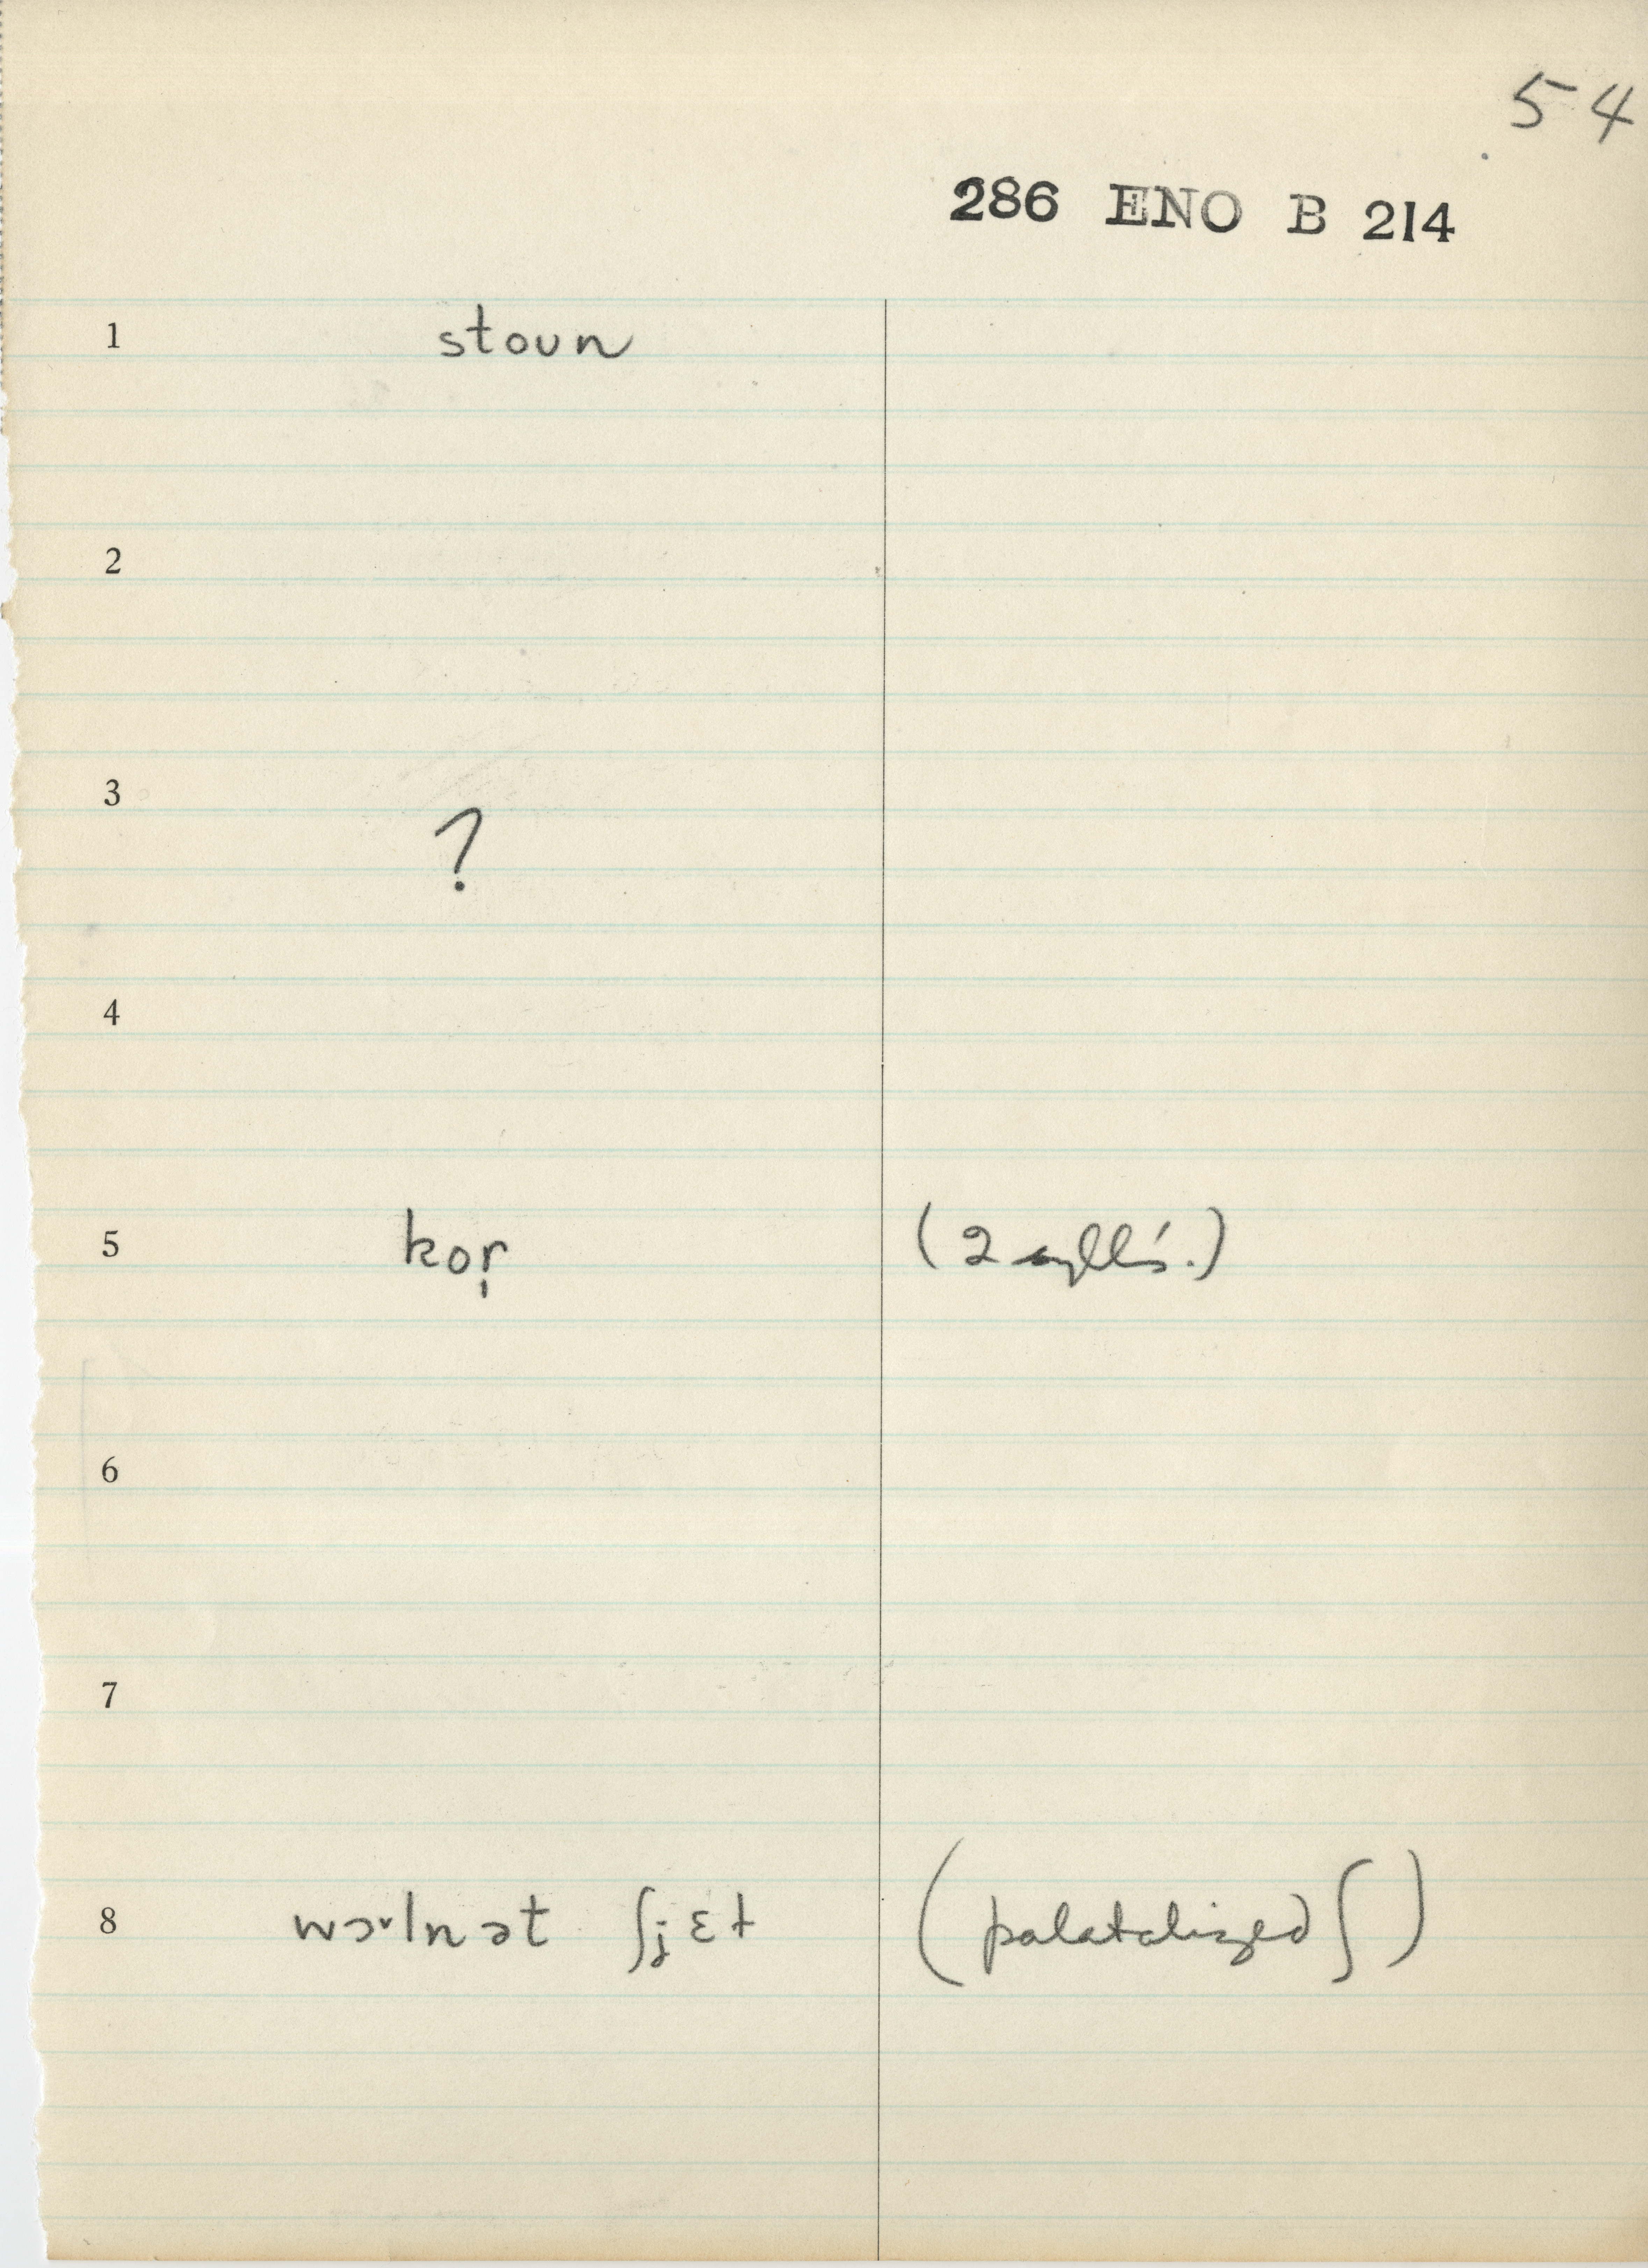 54
286 ENO B 214
1 stoun
2
3 ?
4
5 kor̩ (2 sylls.)
6
7
8 wɔ˞lnət ʃjɛt (palatalized ʃ)